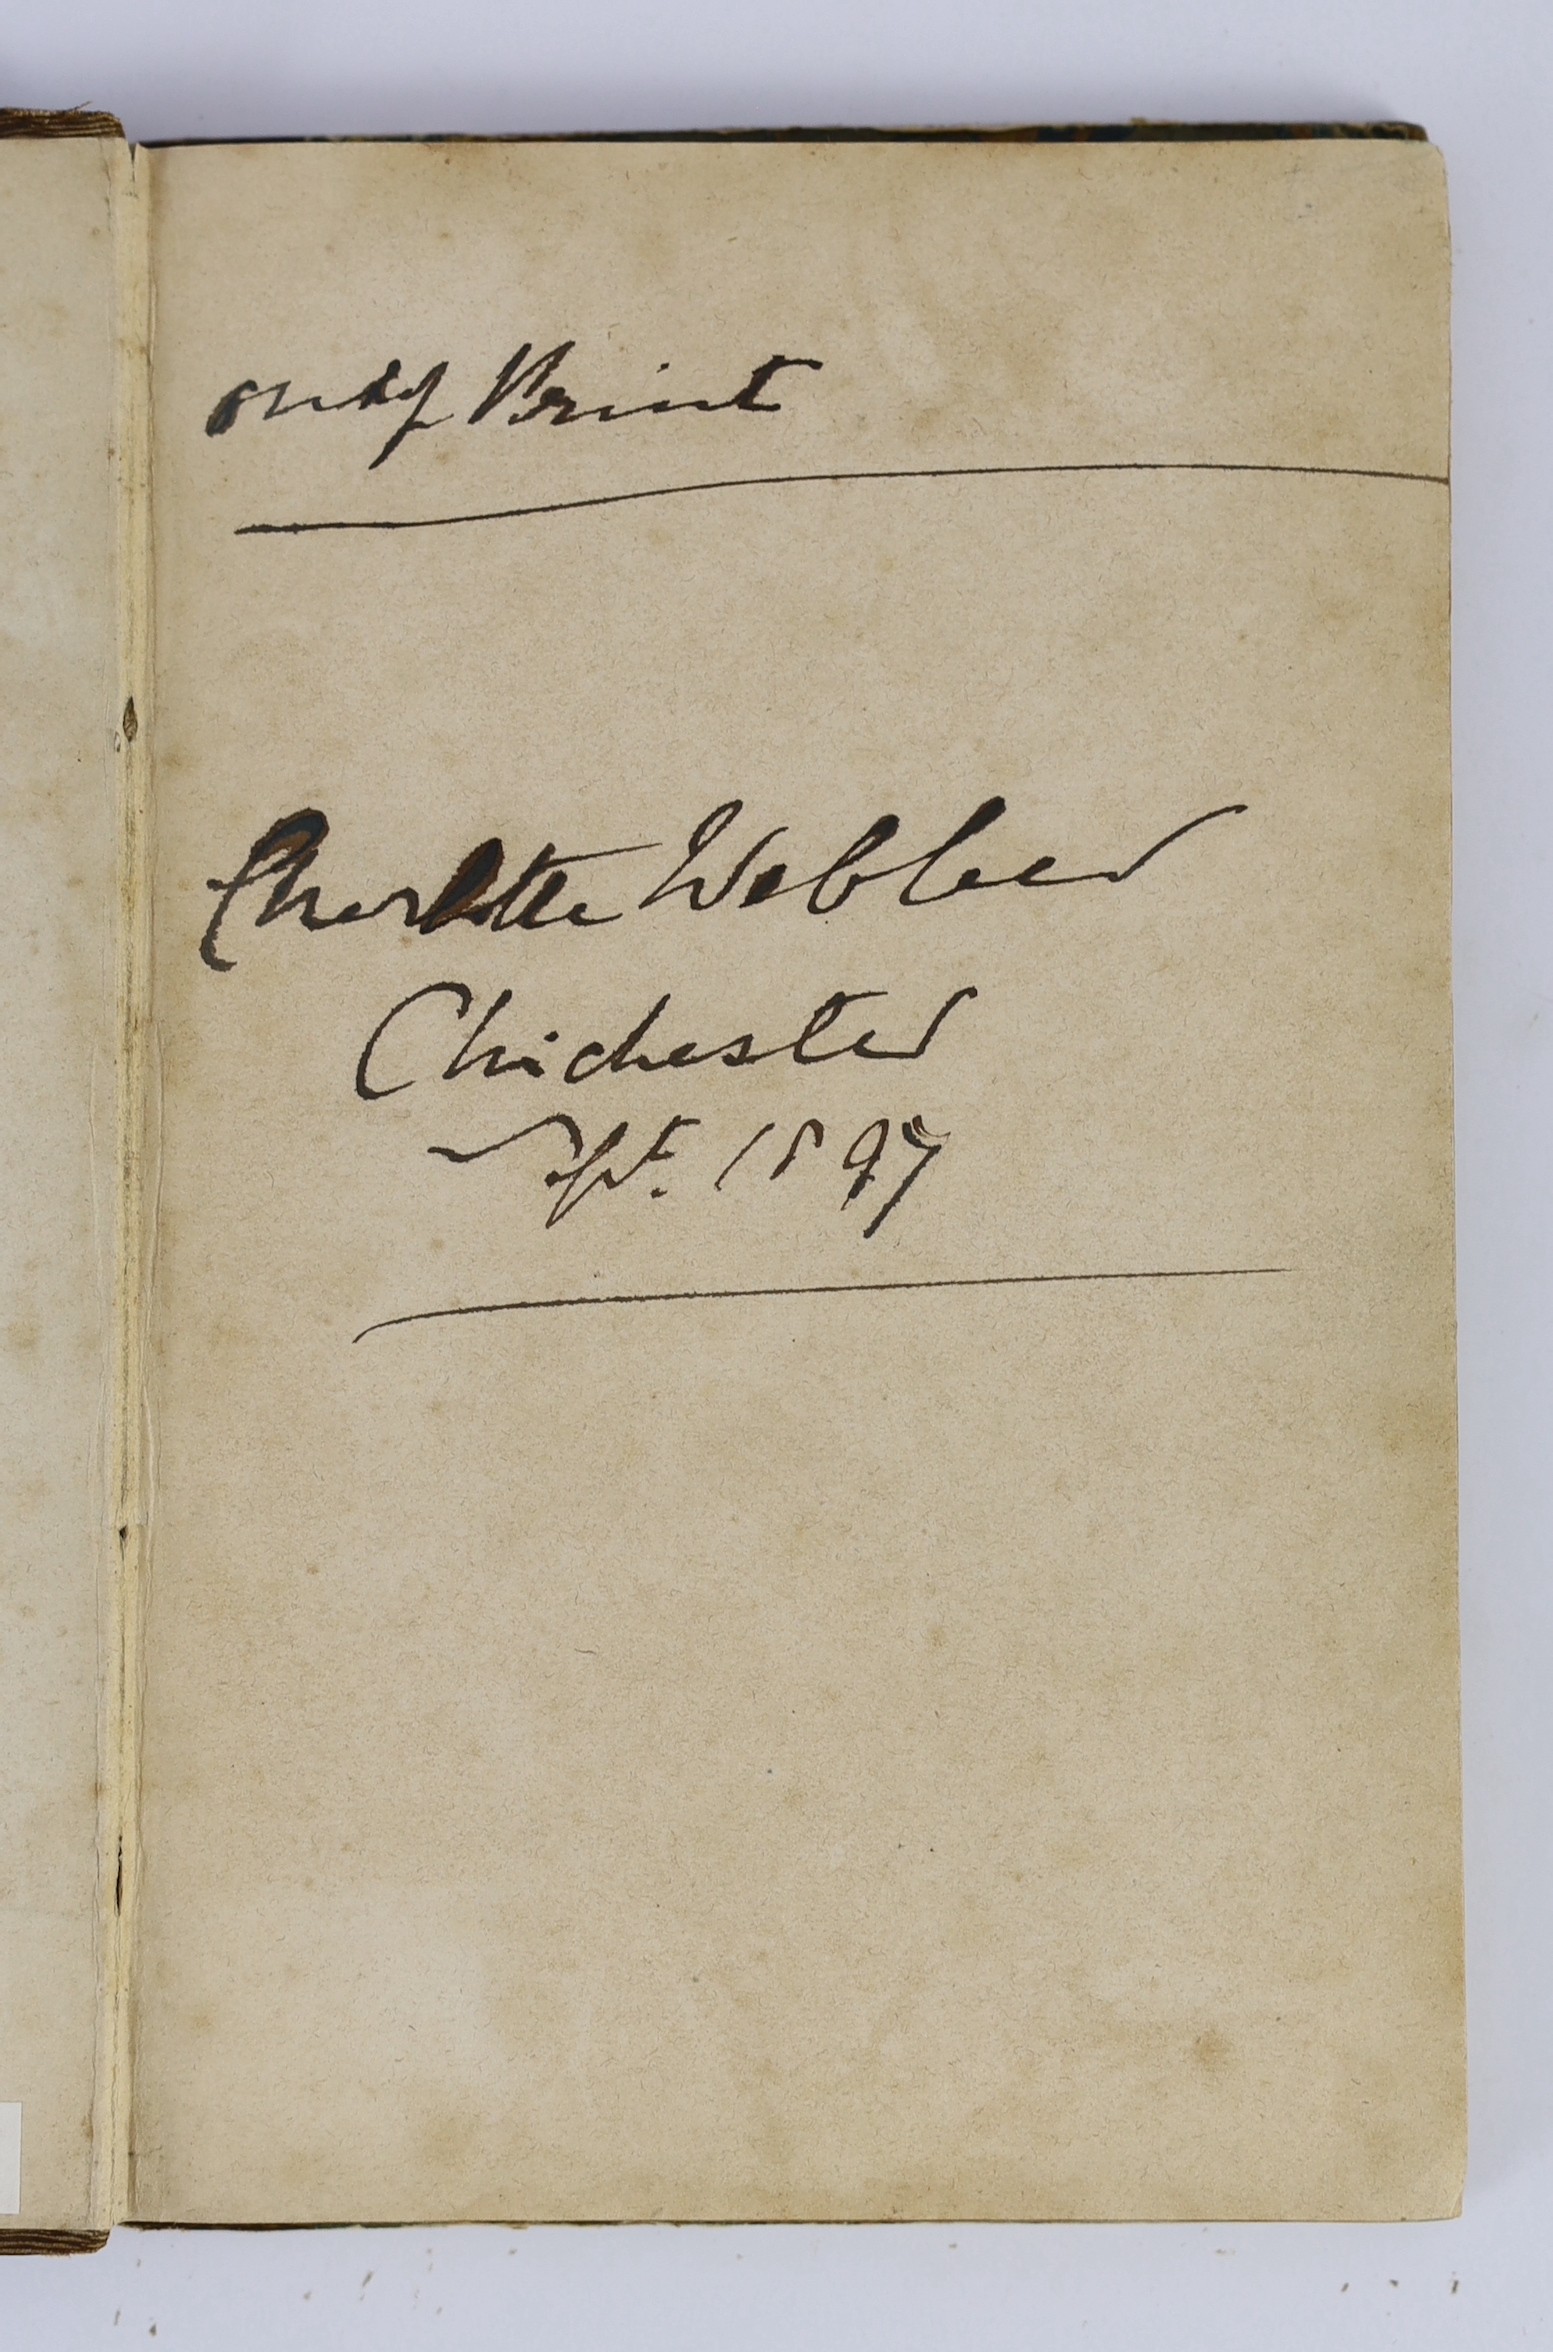 out of Print
Charlotte Webber
Chichester
Sept. 1897